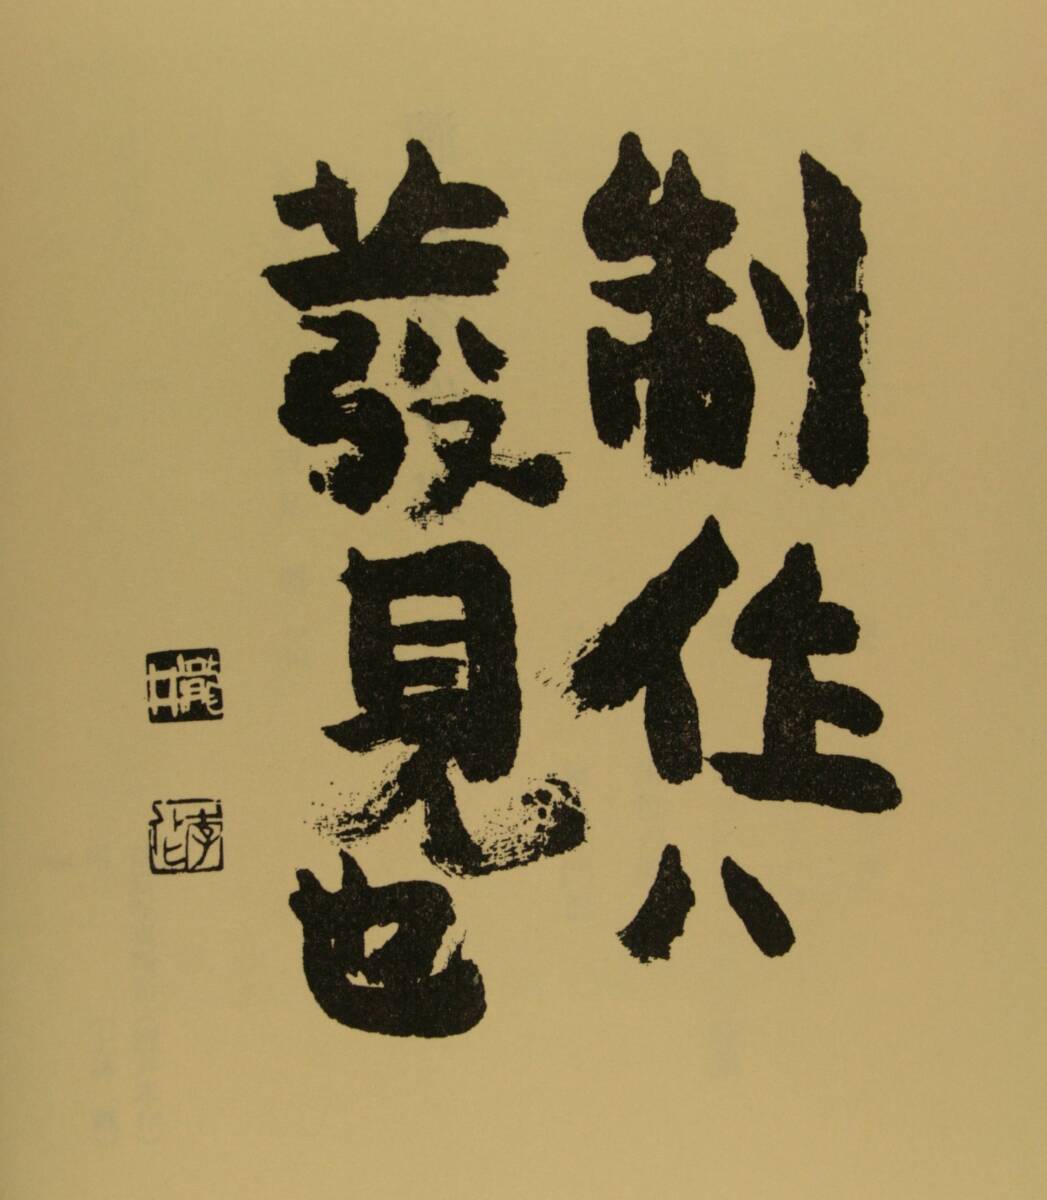 制作ハ
發見也